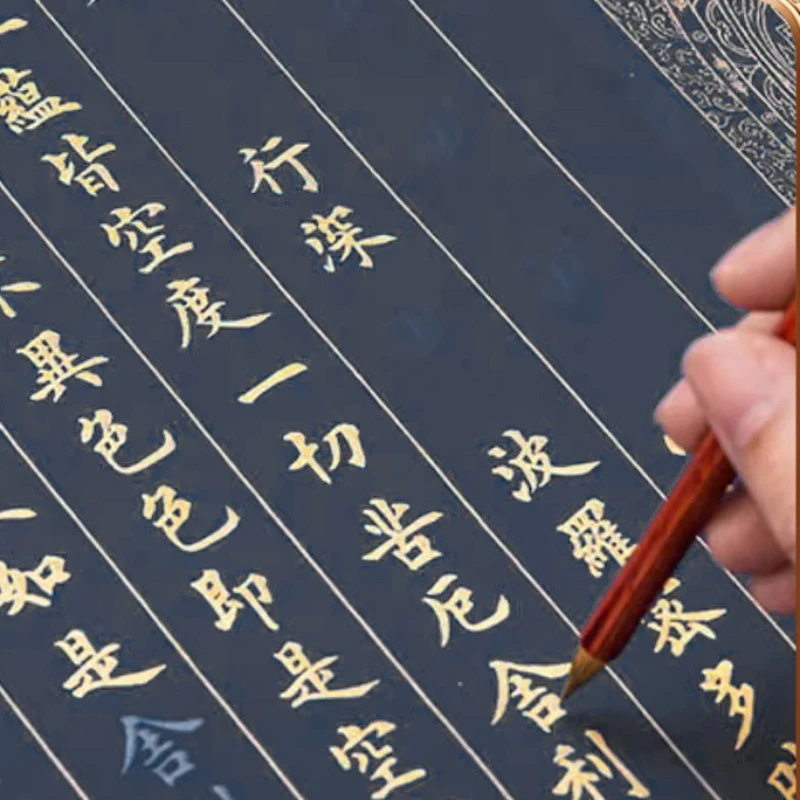 行深波羅多
蘊皆空度一切苦厄舍利
不異色色即是空
如是舍